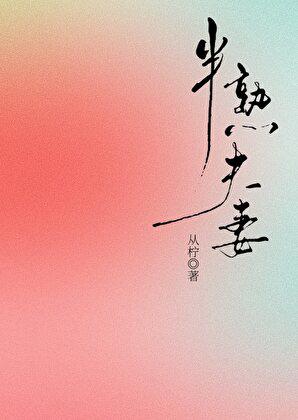 半熟夫妻
从柠◎著